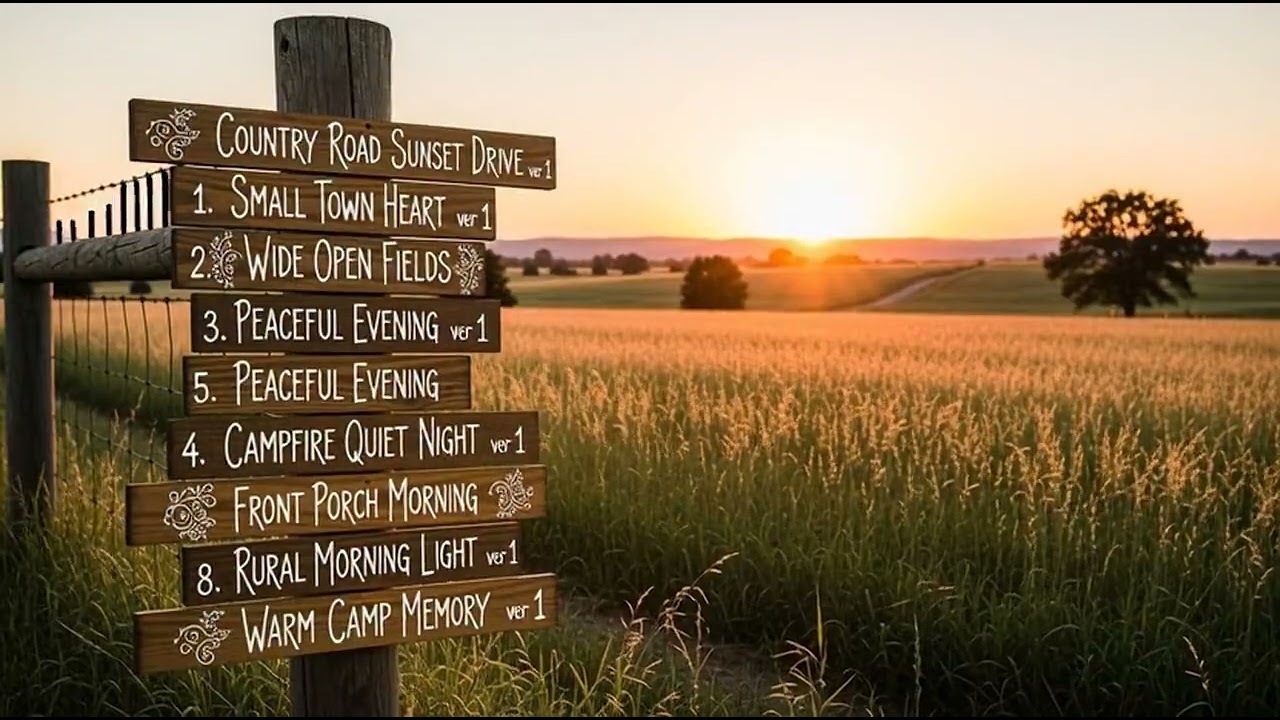 COUNTRY ROAD SUNSET DRIVE ver 1
1. SMALL TOWN HEART ver 1
2. WIDE OPEN FIELDS
3. PEACEFUL EVENING ver 1
5. PEACEFUL EVENING
4. CAMPFIRE QUIET NIGHT ver 1
FRONT PORCH MORNING
8. RURAL MORNING LIGHT ver 1
WARM CAMP MEMORY ver 1